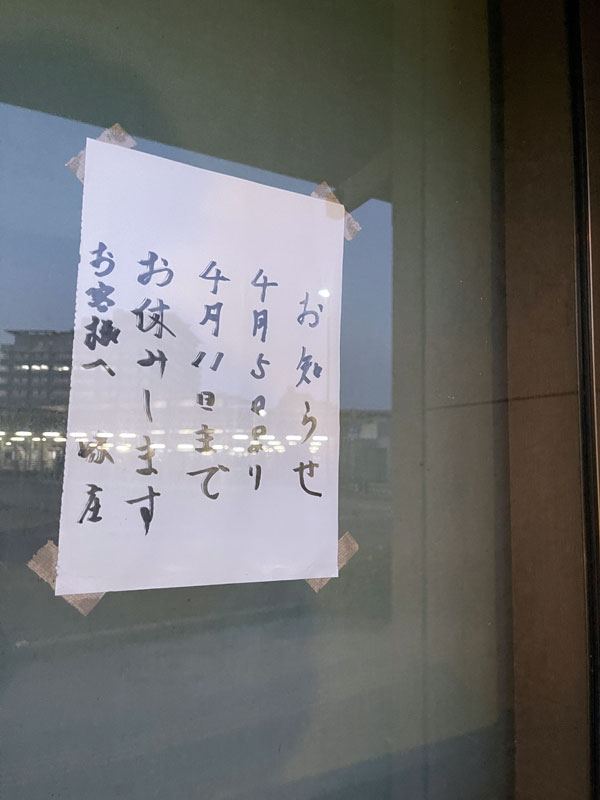 お知らせ
4月5日より
4月11日まで
お休みします
お客様へ